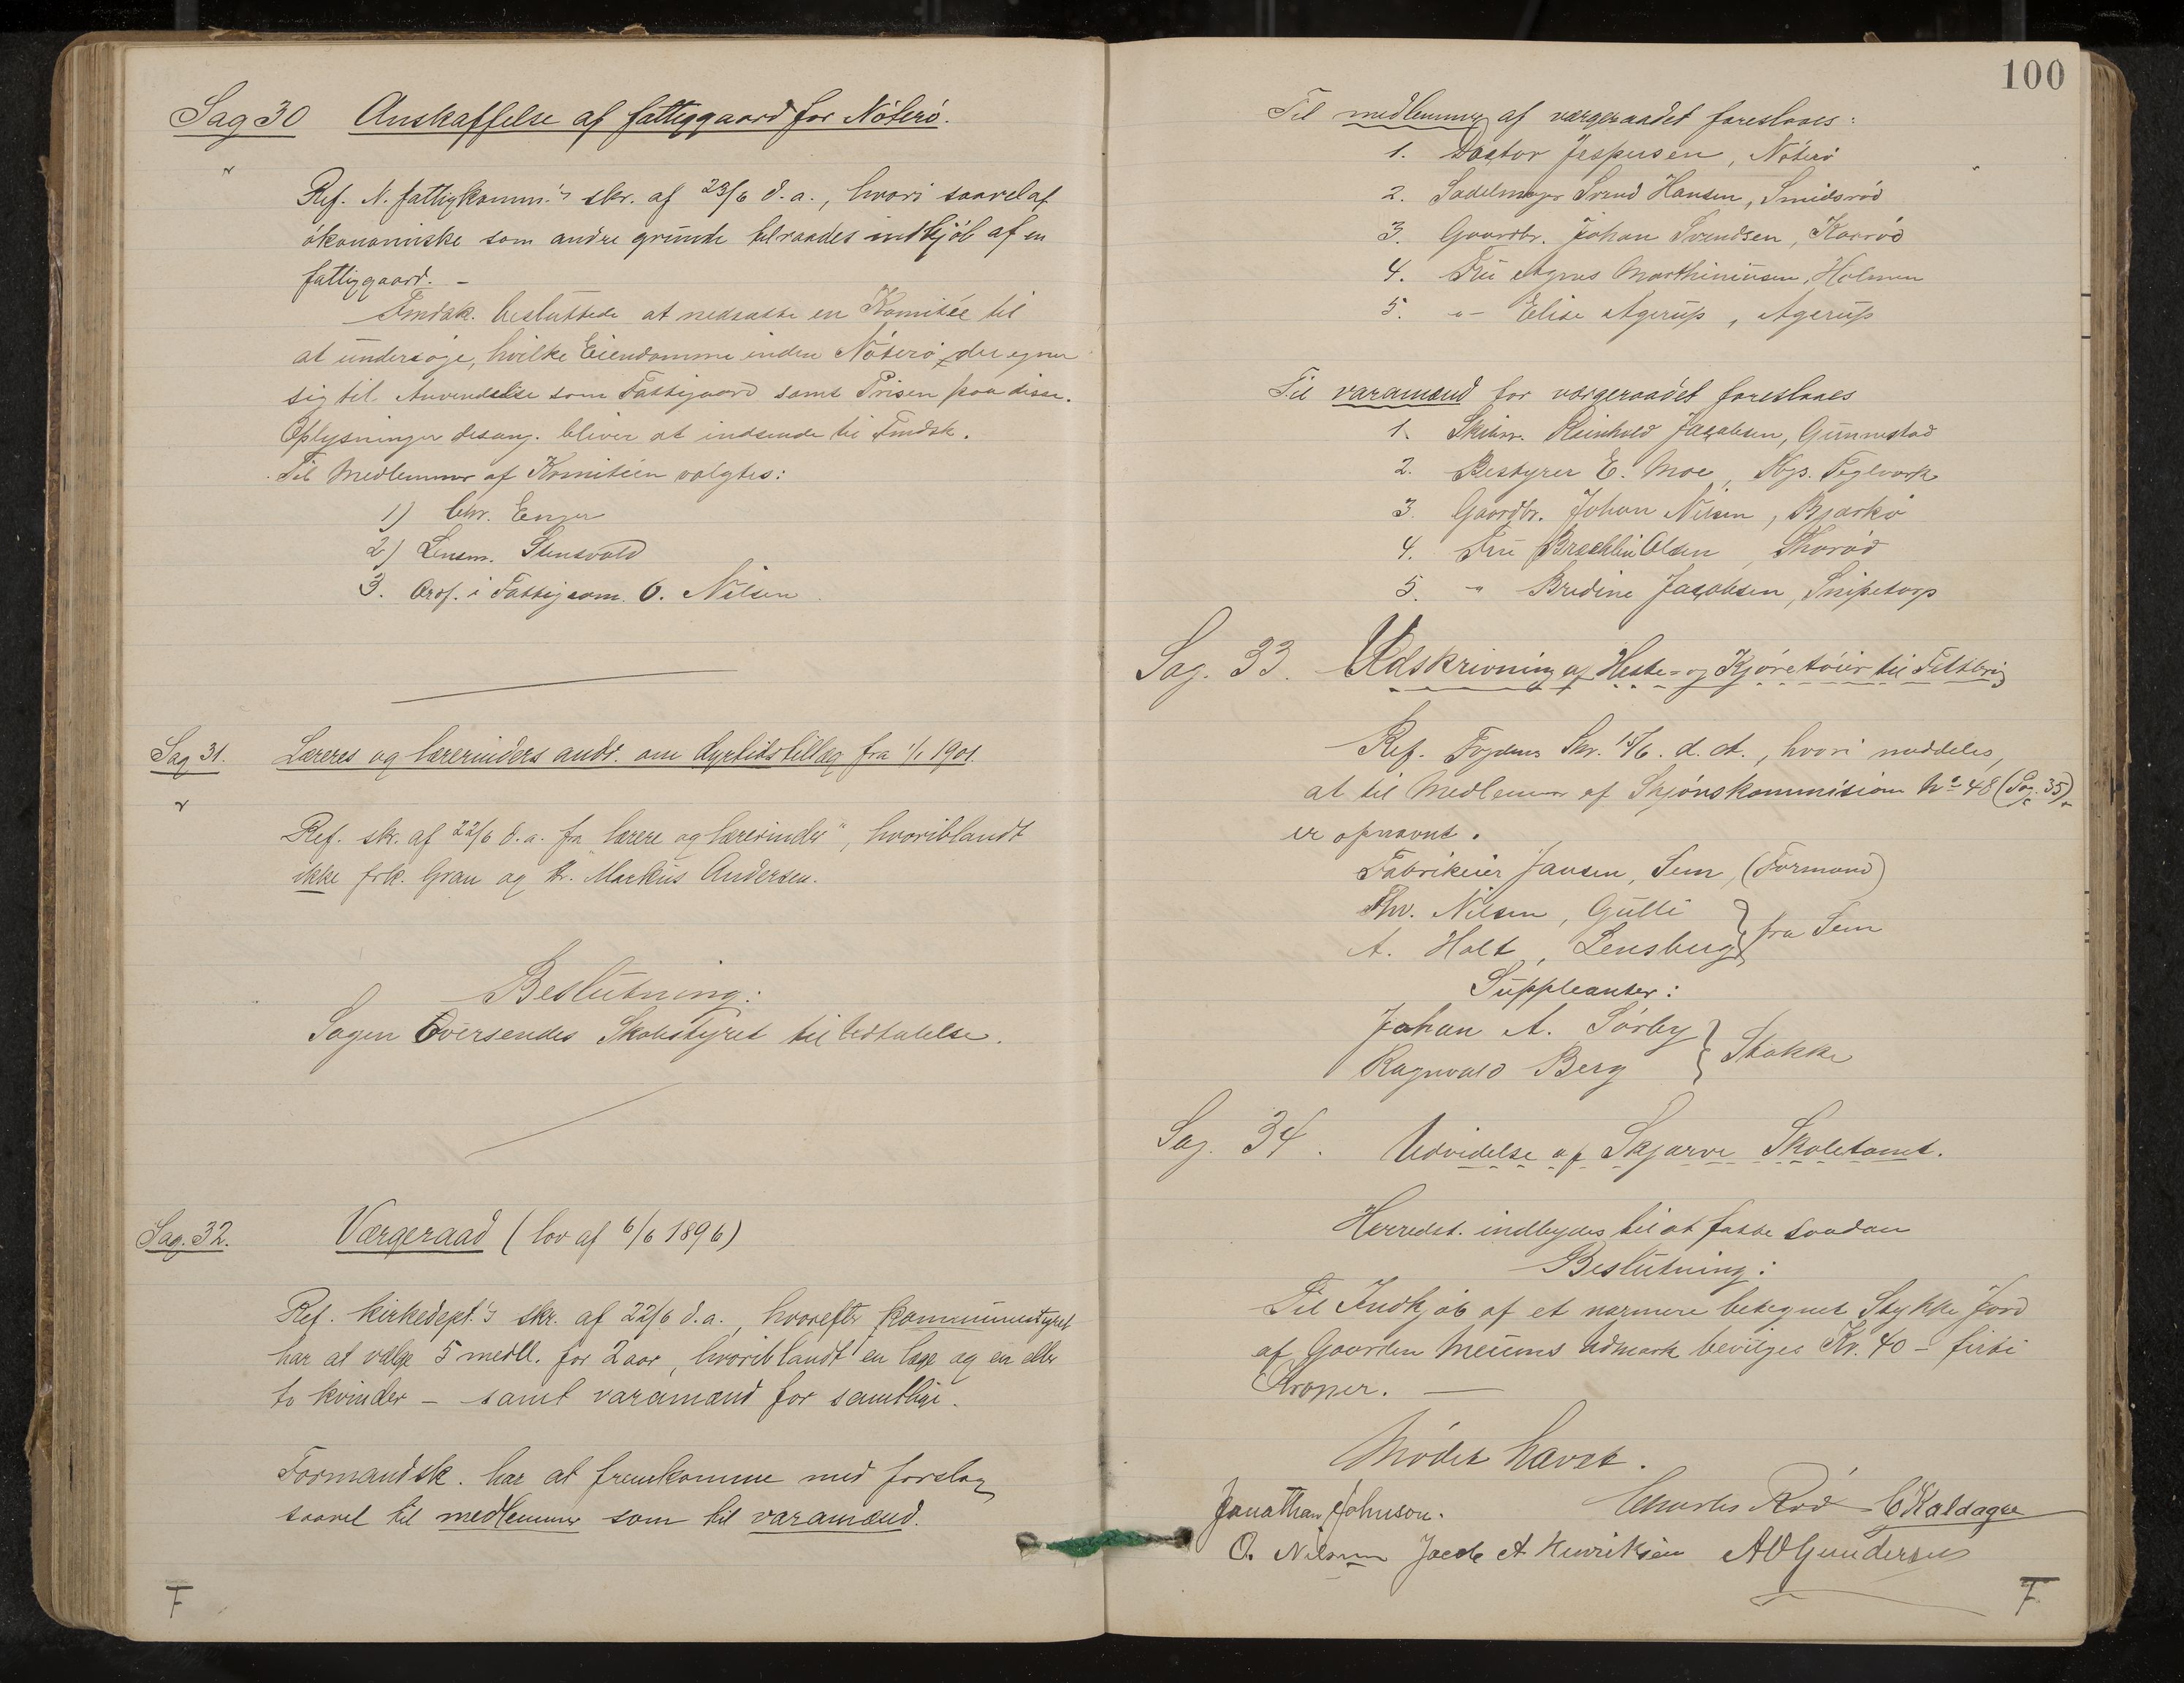 Sag 30 Anskaffelse af fattiggaard for Nøterø.
Ref. N. fattigkomm.'s skr. af 23/6 d. a., hvori saavel af
økonomiske som andre grunde tilraades indkjøb af en
fattiggaard. –
Fmdsk. besluttede at nedsætte en Komitée til
at undersøge, hvilke Eiendomme inden Nøterø der egner
sig til Anvendelse som Fattiggaard samt Prisen paa disse.
Oplysninger desang. bliver at indsende til Fmdsk.
Til Medlemmer af Komitéen valgtes:
1) Chr. Enger
2) Lensm. Stensvold
3. Orof. i Fattigcom. O. Nilsen
Sag 31. Læreres og lærerinders andr. om dyrtidstillæg fra 1/1 1901.
Ref. skr. af 22/6 d. a. fra "lærere og lærerinder", hvoriblandt
ikke frk. Gran og hr. Markus Andersen.
Beslutning:
Sagen Oversendes Skolestyret til Udtalelse.
Sag. 32. Værgeraad (lov af 6/6 1896)
Ref. kirkedept.'s skr. af 22/6 d. a., hvorefter kommunestyret
har at vælge 5 medll. for 2 aar, hvoriblandt en læge og en eller
to kvinder – samt varamænd for samtlige.
Formandsk. har at fremkomme med forslag
saavel til medlemmer som til varamænd.
F
100
Til medlemmer af værgeraadet foreslaaes:
1. Doktor Jespersen, Nøterø
2. Sadelmager Svend Hansen, Smidsrød
3. Gaardbr. Johan Svendsen, Kaarød
4. Fru Agnes Marthiniusen, Holmen
5. " – Elise Agerup, Agerup
Til varamænd for værgeraadet foreslaaes
1. Skibsr. Reinhold Jacobsen, Gunnestad
2. Bestyrer E. Moe, Tbgs. Teglverk
3. Gaardbr. Johan Nilsen, Bjerkø
4. Fru Olsen, Skorød
5. " Bredine Jacobsen, Snipetorp
Sag. 33. Udskrivning af Heste- og Kjøretøier til Feltbrug
Ref. Fogdens Skr. 15/6. d. A., hvori meddeles,
at til Medlemmer af Skjønskommision No 48 (Sag. 35)
er opnævnt.
Fabrikeier Jansen, Sem, (Formand)
Thv. Nilsen, Gulli
A. Holt, Lensberg } fra Sem
Suppleanter:
Johan A. Sørby
Ragnvald Berg } Stokke
Sag. 34. Udvidelse af Skjærve Skoletomt.
Herredst. indbydes til at fatte saadan
Beslutning:
Til Indkjøb af et nærmere betegnet Stykke Jord
af Gaarden Meums Udmark bevilges Kr. 40 – firti
Kroner. —
Mødet hævet.
Jonathan Johnson. Charles Rød C Kaldager
O. Nilsen Jacob A Henriksen A O Gundersen
F.